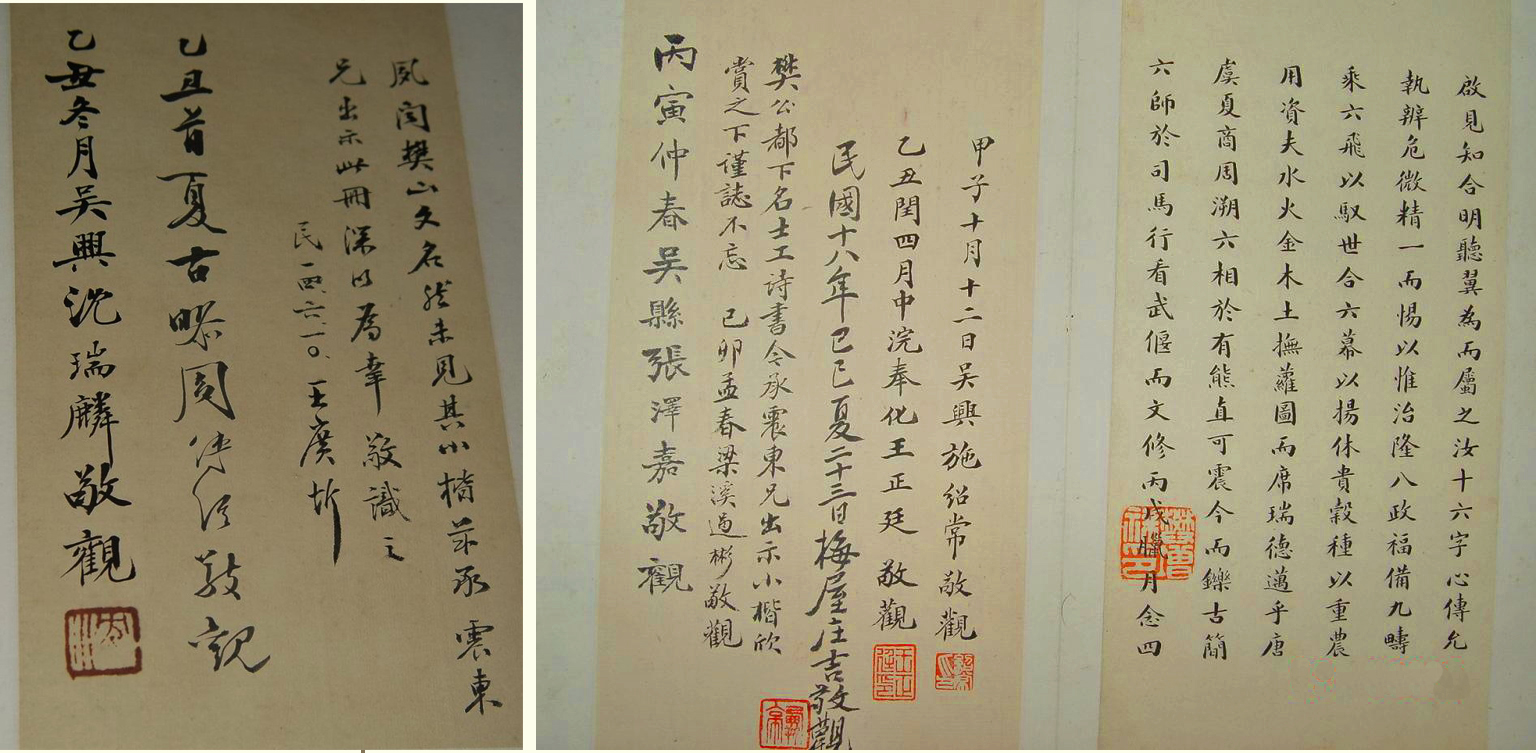 啟見知合明聽翼為而屬之汝十六字心傳允
執辨危微精一而惕以惟治隆八政福備九疇
乘六飛以馭世合六幕以揚休貴穀種以重農
用資夫水火金木土撫蘿圖而席瑞德邁乎唐
虞夏商周溯六相於有熊直可震今而鑠古簡
六師於司馬行看武偃而文修丙戌臘月念四
甲子十月十二日吳興施紹常敬觀
乙丑閏四月中浣奉化王正廷敬觀
民國十八年己巳夏二十三日梅屋庄吉敬觀
樊公都下名士工詩書今承震東兄出示小楷欣
賞之下謹誌不忘 己卯孟春梁溪過彬敬觀
丙寅仲春吳縣張澤嘉敬觀
夙聞樊山文名然未見其小楷茲承震東
兄出示此冊深以為幸 敬識之
民一四、六、一〇、王廣圻
乙丑首夏古黟周傳經敬觀
乙丑冬月吳興沈瑞麟敬觀